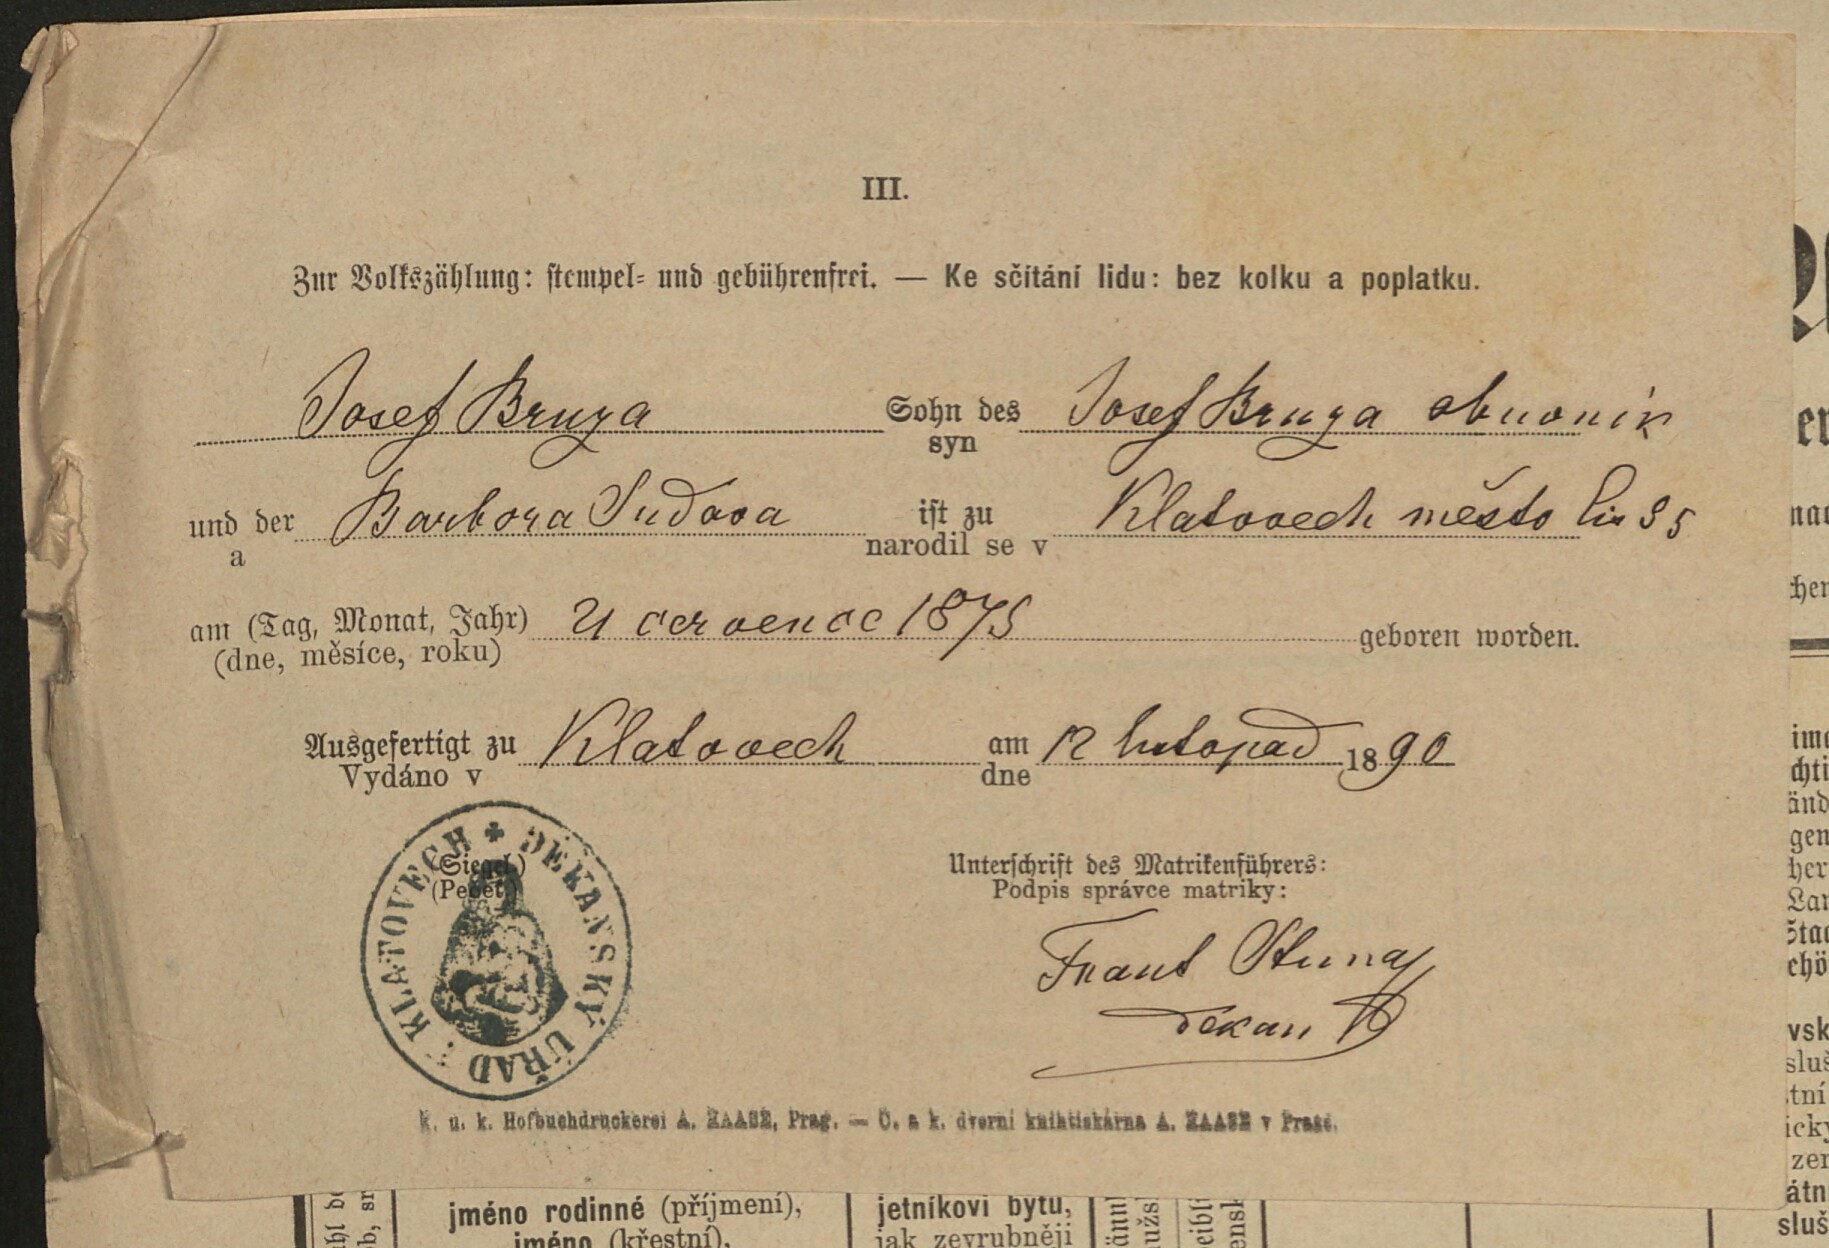 III.
Zur Volkszählung: stempel- und gebührenfrei. — Ke sčítání lidu: bez kolku a poplatku.
Josef Bruza Sohn des Josef Bruza obuvník
syn
und der Barbora Sudova ist zu Klatovech město
a narodil se v
am (Tag, Monat, Jahr) 21 červenec 1875 geboren worden.
(dne, měsíce, roku)
Ausgefertigt zu Klatovech am 12 listopad 1890
Vydáno v dne
(Siegel.)
(Pečeť.)
DĚKANSKÝ ÚŘAD KLATOVECH
Unterschrift des Matrikenführers:
Podpis správce matriky:
Frant
děkan
K. u. k. Hofbuchdruckerei A. HAASE, Prag. — C. a k. dvorní knihtiskárna A. HAASE v Praze.
jméno rodinné (příjmení), jetníkovi bytu,
jméno (křestní), jak zevrubněji